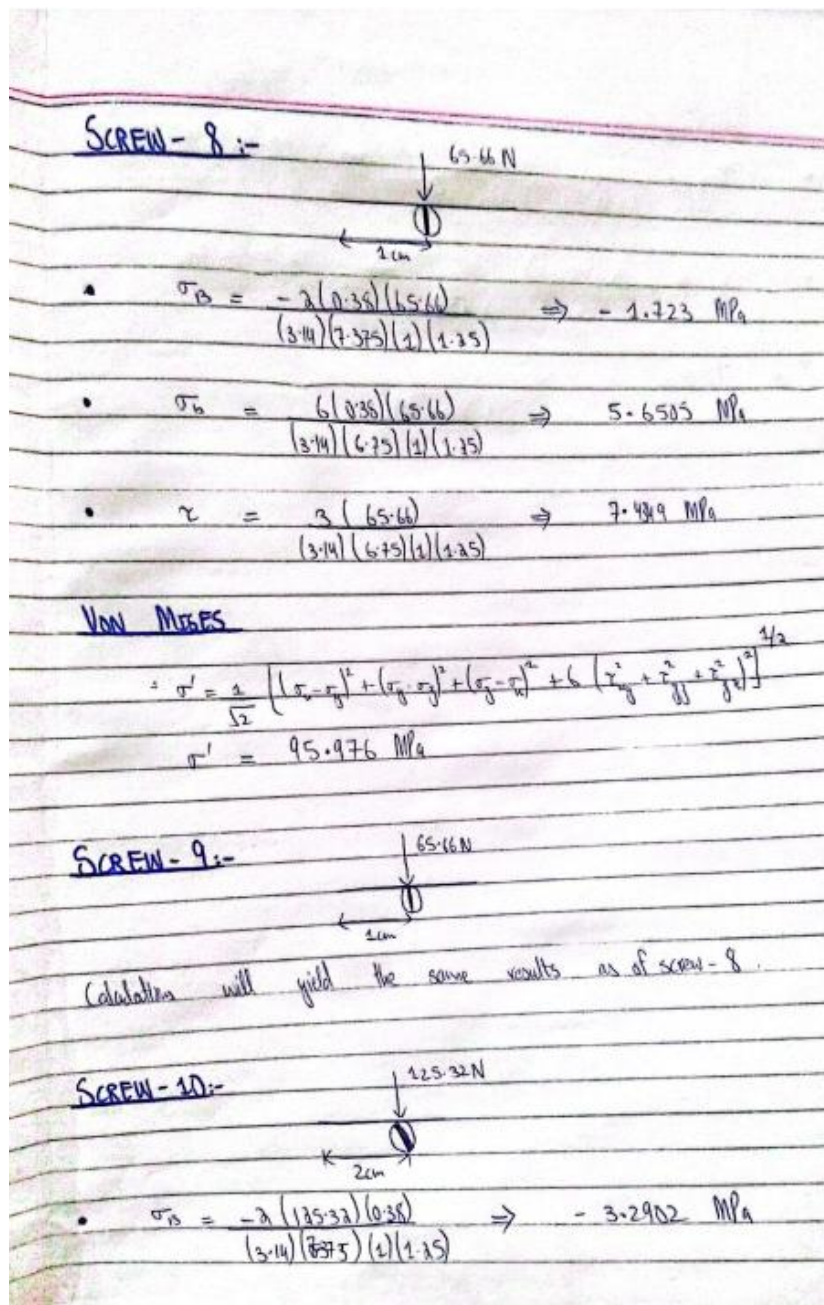 SCREW - 8 :-
65.66 N
1 cm
• σB = -2(0.38)(65.66) / (3.14)(7.375)(1)(1.25) ⇒ - 1.723 MPa
• σb = 6(0.38)(65.66) / (3.14)(6.75)(1)(1.25) ⇒ 5.6505 MPa
• τ = 3(65.66) / (3.14)(6.75)(1)(1.25) ⇒ MPa
VON MISES
σ' = 1/√2 [(σx - σy)² + (σy - σz)² + (σz - σx)² + 6 (τ²xy + τ²yz + τ²zx)²]^1/2
σ' = 95.976 MPa
SCREW - 9 :-
65.66 N
1 cm
Calculations will yield the same results as of screw - 8 .
SCREW - 10 :-
125.32 N
2 cm
• σB = -2(125.32)(0.38) / (3.14)(7.375)(1)(1.25) ⇒ - 3.2902 MPa